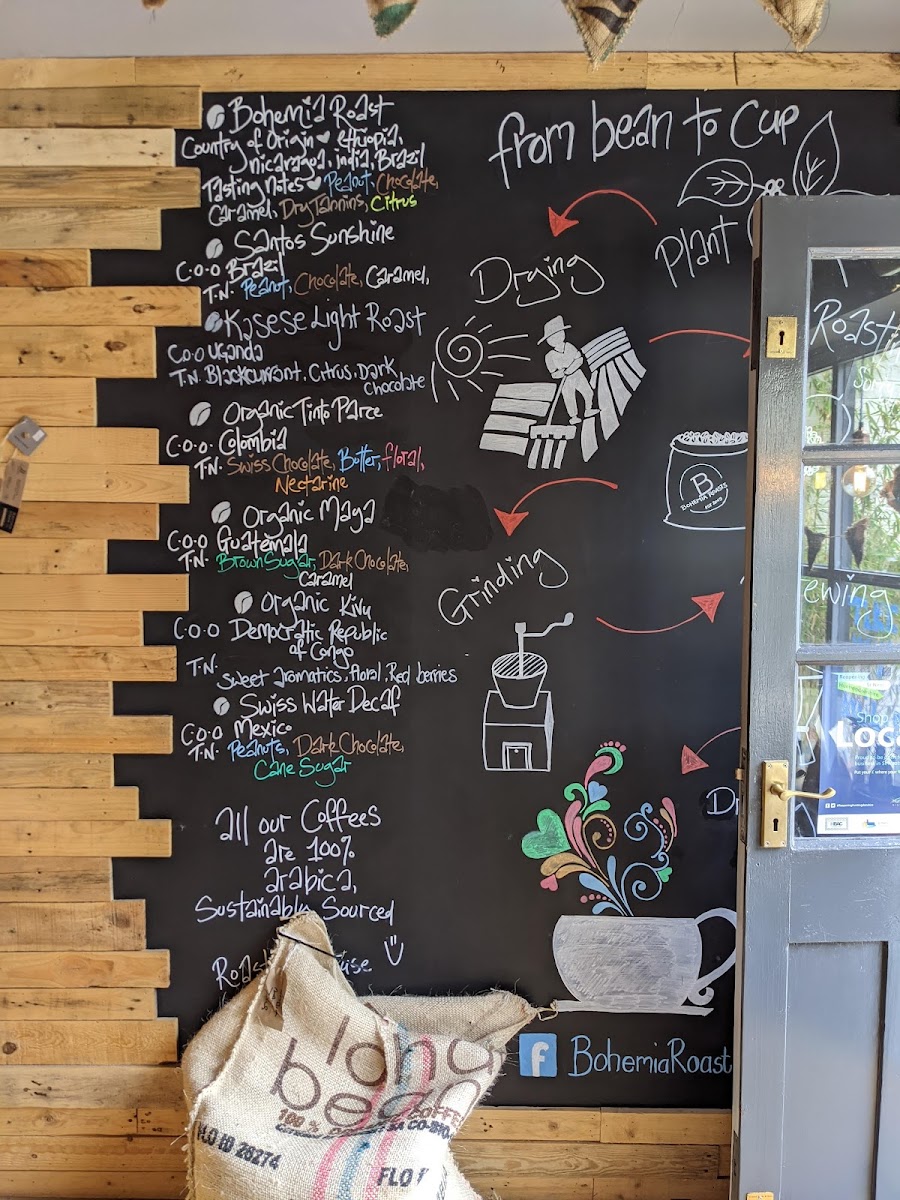 Bohemia Roast
Country of Origin Ethiopia,
Nicaragoa, india, Brazil
Tasting Notes Peanut, Chocolate,
Caramel, Dry Tannins, Citrus
Santos Sunshine
C.O.O Brazil
T.N. Peanut, Chocolate, Caramel,
Kasese Light Roast
C.O.O Uganda
T.N. Blackcurrant, Citrus, Dark
chocolate
Organic Tinto Parce
C.O.O. Colombia
T.N. Swiss Chocolate, Butter, floral,
Nectarine
Organic Maya
C.O.O Guatemala
T.N. Brown Sugar, Dark Chocolate,
Caramel
Organic Kivu
C.O.O Democratic Republic
of Congo
T.N.
Sweet aromatics, floral, Red berries
Swiss Water Decaf
C.O.O Mexico
T.N. Peanuts, Dark Chocolate,
Cane Sugar
all our Coffees
are 100%
arabica,
Sustainably Sourced
from bean to Cup
Plant
Drying
Roasti
B
BOHEMIA ROASTS
Grinding
ewing
Shop
Loca
BohemiaRoast
f
100 %
COFFE
FLO ID 28274
FLO I